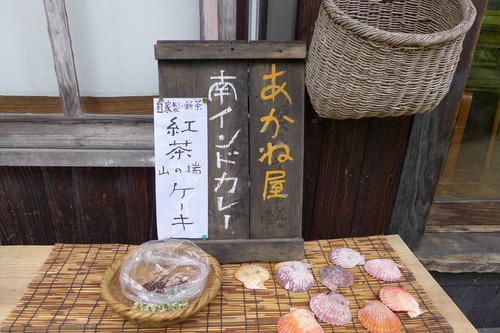 あかね屋
南インドカレー
自家製・新茶
紅茶
山の端
ケーキ